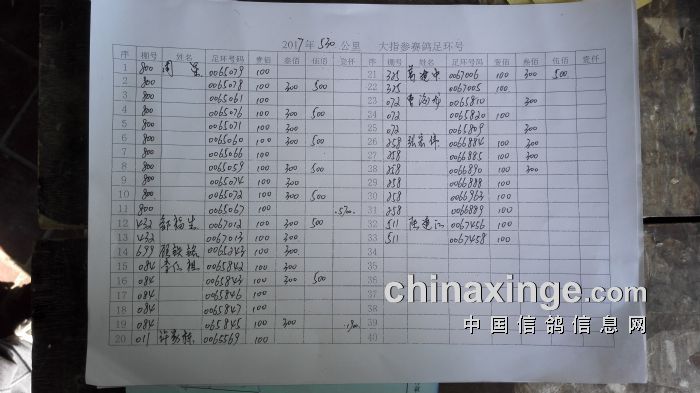 2017年530公里 大指参赛鸽足环号
序 棚号 姓名 足环号码 壹佰 叁佰 伍佰 壹仟
1 800 周 0065079 100
2 800 0065078 100 300 500
3 800 0065061 100
4 800 0065076 100 300 500
5 800 0065071 100 300
6 800 0065060 100 300 500
7 800 0065066 100
8 800 0065059 100 300 500
9 800 0065074 100 300
10 800 0065072 100 300 500
11 800 0065067 100
12 432 0067012 100 300 500
13 432 0067013 100 300
14 699 0065243 100 300
15 084 0065842 100 300
16 084 0065843 100 300 500
17 084 0065846 100
18 084 0065847 100
19 084 065845 100 300
20 011 0065569 100
序 棚号 姓名 足环号码 壹佰 叁佰 伍佰 壹仟
21 325 0067006 100 300 500
22 325 0067005 100
23 072 曹海 0065810 300
24 072 0065820 100
25 072 0065809 300
26 258 张 0066884 100 300
27 258 0066885 100 300
28 258 0066890 100 300
29 258 0066888 100
30 258 0066963 100
31 258 0066889 100
32 511 陆建江 0067456 100
33 511 0067458 100
34
35
36
37
38
39
40
chinaxinge.com
中国信鸽信息网